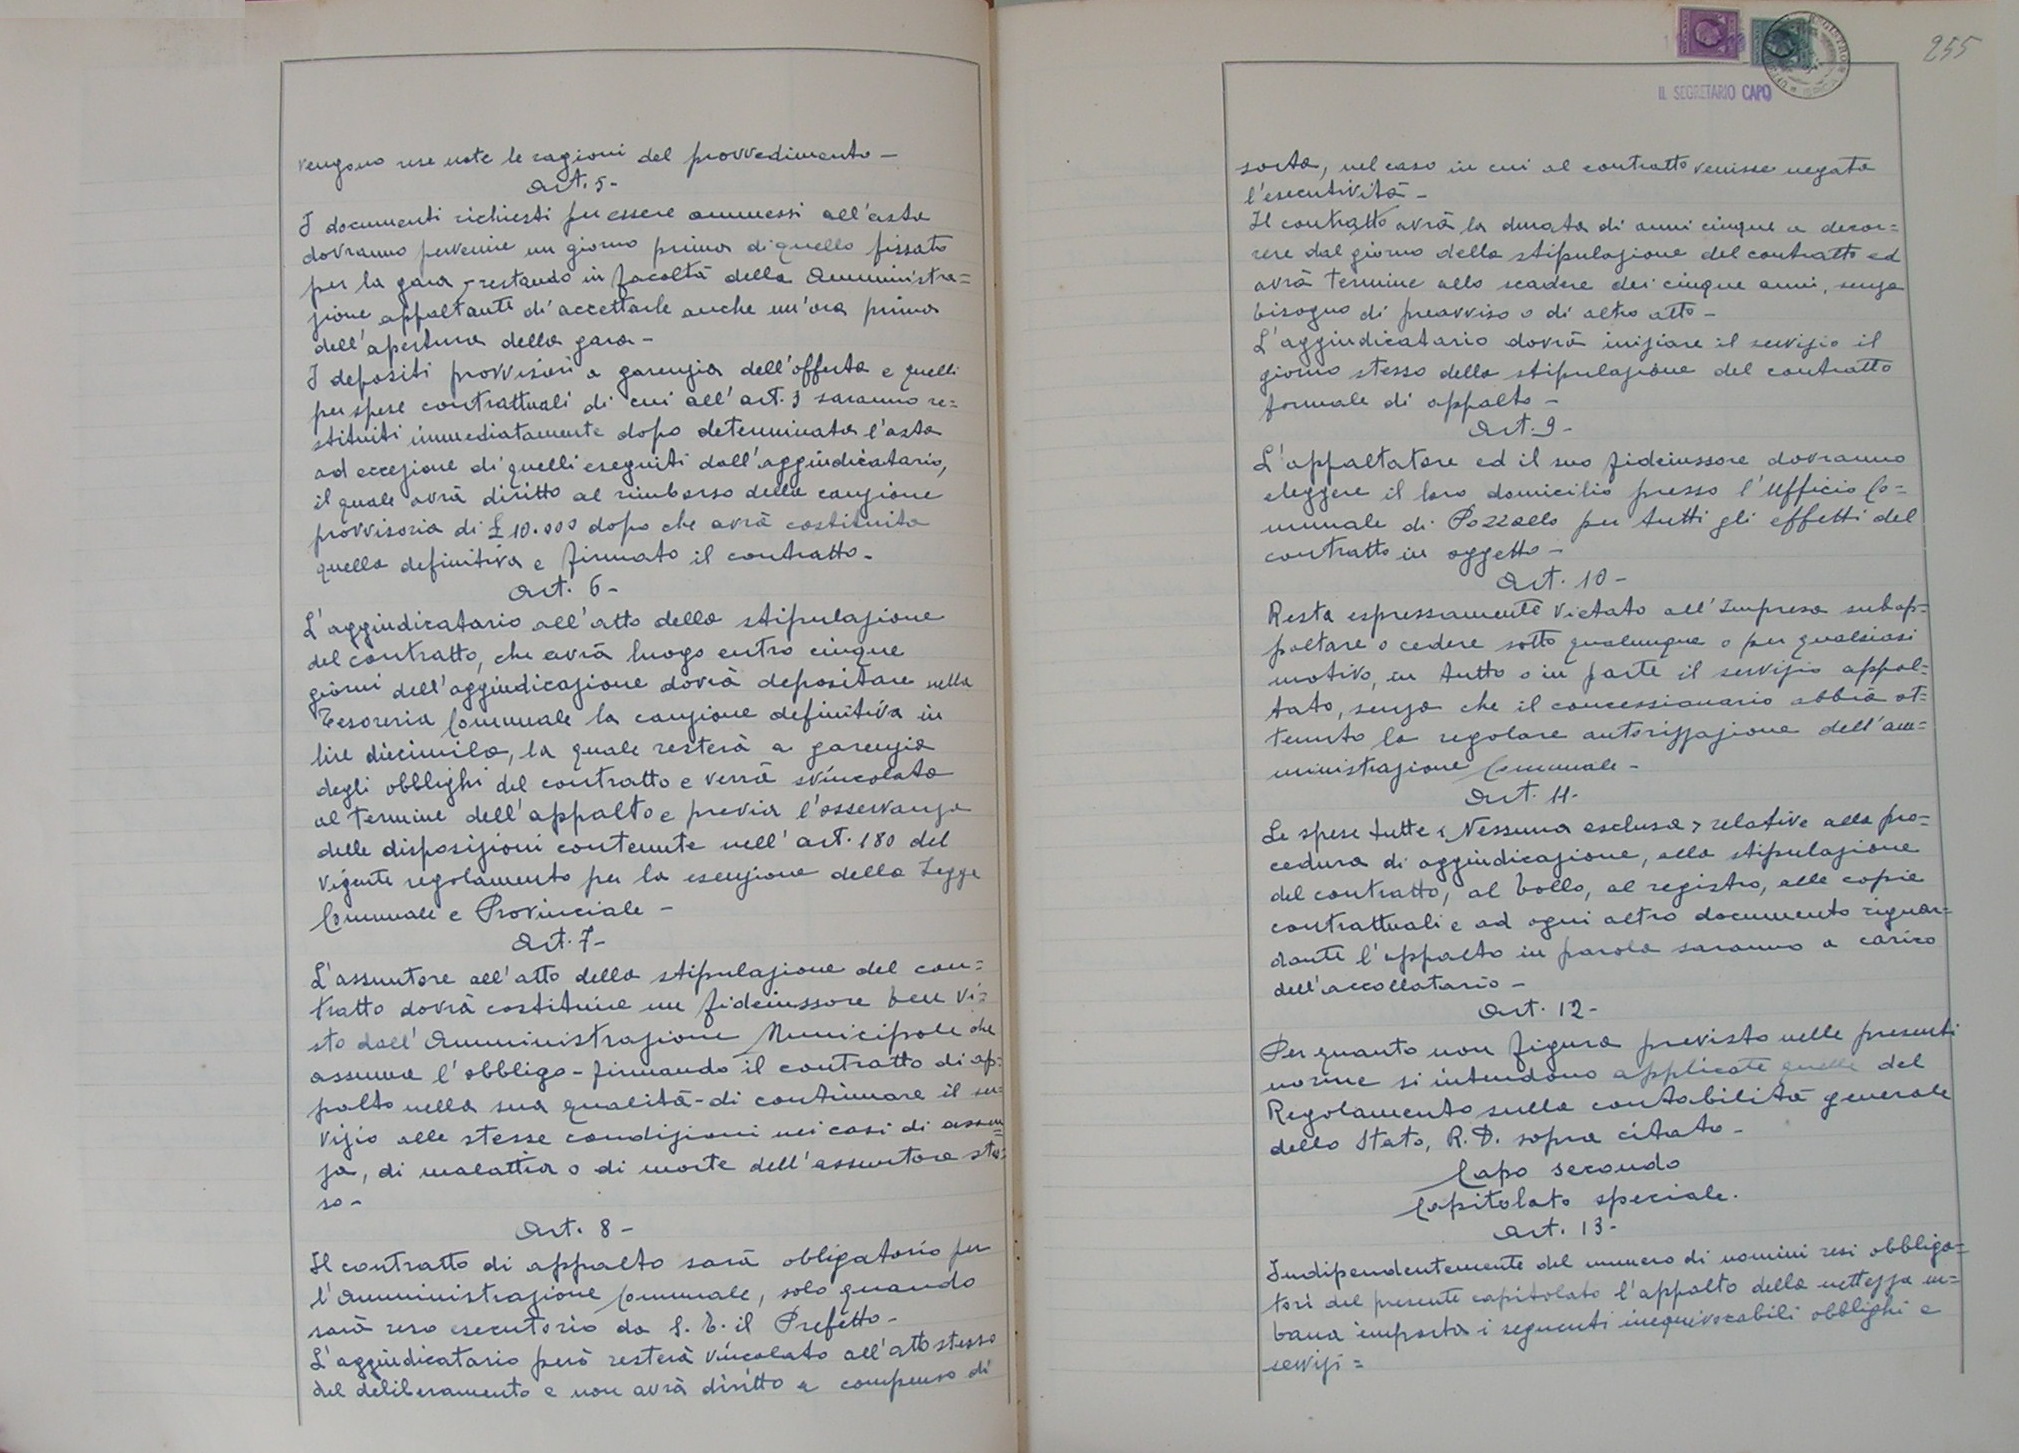 vengono rese note le ragioni del provvedimento -
Art. 5 -
I documenti richiesti per essere ammessi all'asta
dovranno pervenire un giorno prima di quello fissato
per la gara, restando in facoltà della Amministra=
zione appaltante di accettarle anche un'ora prima
dell'apertura della gara -
I depositi provvisori a garenzia dell'offerta e quelli
per spese contrattuali di cui all'art. 3 saranno re=
stituiti immediatamente dopo determinata l'asta
ad eccezione di quelli eseguiti dall'aggiudicatario,
il quale avrà diritto al rimborso della cauzione
provvisoria di £ 10.000 dopo che avrà costituita
quella definitiva e firmato il contratto -
Art. 6 -
L'aggiudicatario all'atto della stipulazione
del contratto, che avrà luogo entro cinque
giorni dell'aggiudicazione dovrà depositare nella
Tesoreria Comunale la cauzione definitiva in
lire diecimila, la quale resterà a garenzia
degli obblighi del contratto e verrà svincolata
al termine dell'appalto e previa l'osservanza
delle disposizioni contenute nell'art. 180 del
vigente regolamento per la esenzione della Legge
Comunale e Provinciale -
Art. 7 -
L'assuntore all'atto della stipulazione del con=
tratto dovrà costituire un fideiussore ben vi=
sto dall'Amministrazione Municipale che
assuma l'obbligo - firmando il contratto di ap=
palto nella sua qualità - di continuare il ser=
vizio alle stesse condizioni nei casi di assen=
za, di malattia o di morte dell'assuntore stes=
so -
Art. 8 -
Il contratto di appalto sarà obligatorio per
l'Amministrazione Comunale, solo quando
sarà reso esecutorio da S. E. il Prefetto -
L'aggiudicatario però resterà vincolato all'atto stesso
del deliberamento e non avrà diritto a compenso di
255
IL SEGRETARIO CAPO
sorta, nel caso in cui al contratto venisse negata
l'esecutività -
Il contratto avrà la durata di anni cinque a decor=
rere dal giorno della stipulazione del contratto ed
avrà termine allo scadere dei cinque anni, senza
bisogno di preavviso o di altro atto -
L'aggiudicatario dovrà iniziare il servizio il
giorno stesso della stipulazione del contratto
formale di appalto -
Art. 9 -
L'appaltatore ed il suo fideiussore dovranno
eleggere il loro domicilio presso l'Ufficio Co=
munale di Pozzallo per tutti gli effetti del
contratto in oggetto -
Art. 10 -
Resta espressamente vietato all'Impresa subap=
paltare o cedere sotto qualunque o per qualsiasi
motivo, in tutto o in parte il servizio appal=
tato, senza che il concessionario abbia ot=
tenuto la regolare autorizzazione dell'am=
ministrazione Comunale -
Art. 11 -
Le spese tutte < Nessuna esclusa > relative alla pro=
cedura di aggiudicazione, alla stipulazione
del contratto, al bollo, al registro, alle copie
contrattuali e ad ogni altro documento riguar=
dante l'appalto in parola saranno a carico
dell'accollatario -
Art. 12 -
Per quanto non figura previsto nelle presenti
norme si intendono applicate quelle del
Regolamento sulla contabilità generale
dello Stato, R. D. sopra citato -
Capo secondo
Capitolato speciale.
Art. 13 -
Indipendentemente del numero di uomini resi obbliga=
tori del presente capitolato l'appalto della nettezza ur=
bana importa i seguenti inequivocabili obblighi e
servizi =